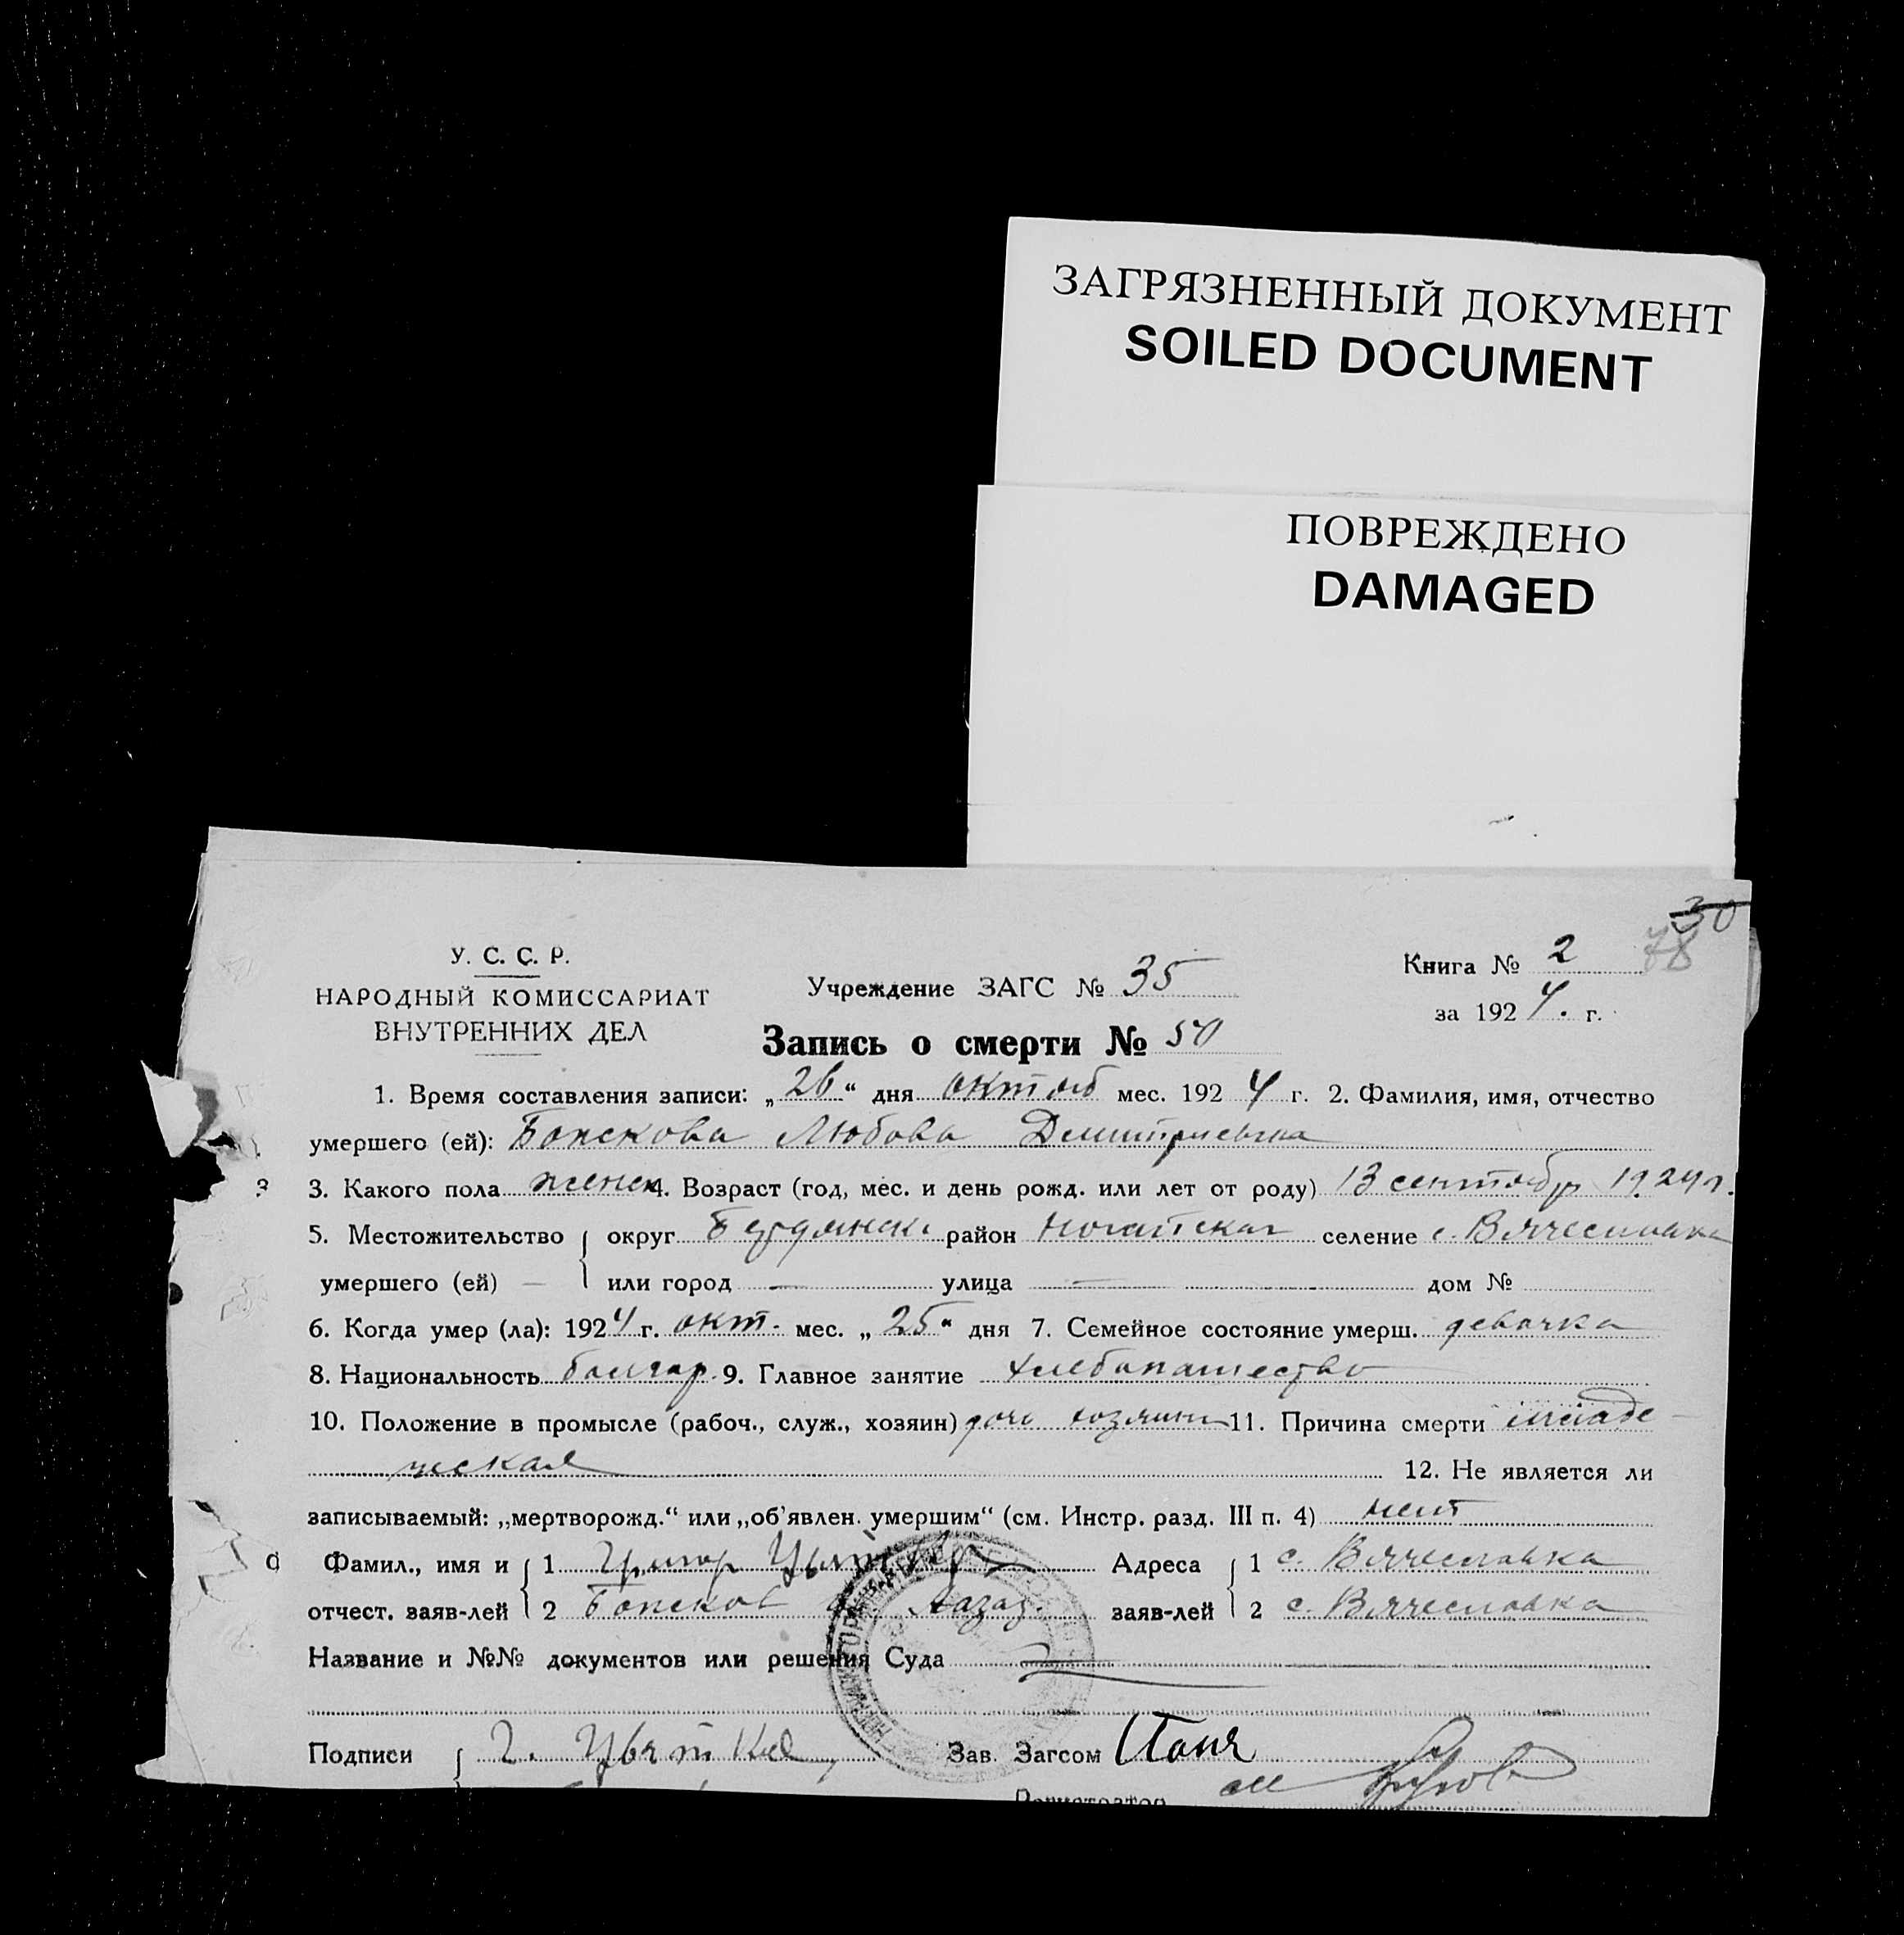 ЗАГРЯЗНЕННЫЙ ДОКУМЕНТ
SOILED DOCUMENT
ПОВРЕЖДЕНО
DAMAGED
30
78
У. С. С. Р.
НАРОДНЫЙ КОМИССАРИАТ
ВНУТРЕННИХ ДЕЛ
Учреждение ЗАГС № 35
Книга № 2
за 1924. г.
Запись о смерти № 50
1. Время составления записи: „26“ дня октяб мес. 1924 г. 2. Фамилия, имя, отчество
умершего (ей): Бонскова Любовь Димитриевна
3. Какого пола женск 4. Возраст (год, мес. и день рожд. или лет от роду) 13 сентябр 1924 г.
5. Местожительство округ Бердянск. район Ногайский селение с. Вячеславка
умершего (ей) — или город — улица — дом №
6. Когда умер (ла): 1924 г. окт. мес. „25“ дня 7. Семейное состояние умерш. девочка
8. Национальность болгар. 9. Главное занятие хлебопашество
10. Положение в промысле (рабоч., служ., хозяин) дочь хозяина 11. Причина смерти младе-
ческая 12. Не является ли
записываемый: „мертворожд.“ или „об'явлен. умершим“ (см. Инстр. разд. III п. 4) нет
Фамил., имя и 1 Адреса 1 с. Вячеславка
отчест. заяв-лей 2 Лазар. заяв-лей 2 с. Вячеславка
Название и №№ документов или решения Суда
Подписи Зав. Загсом